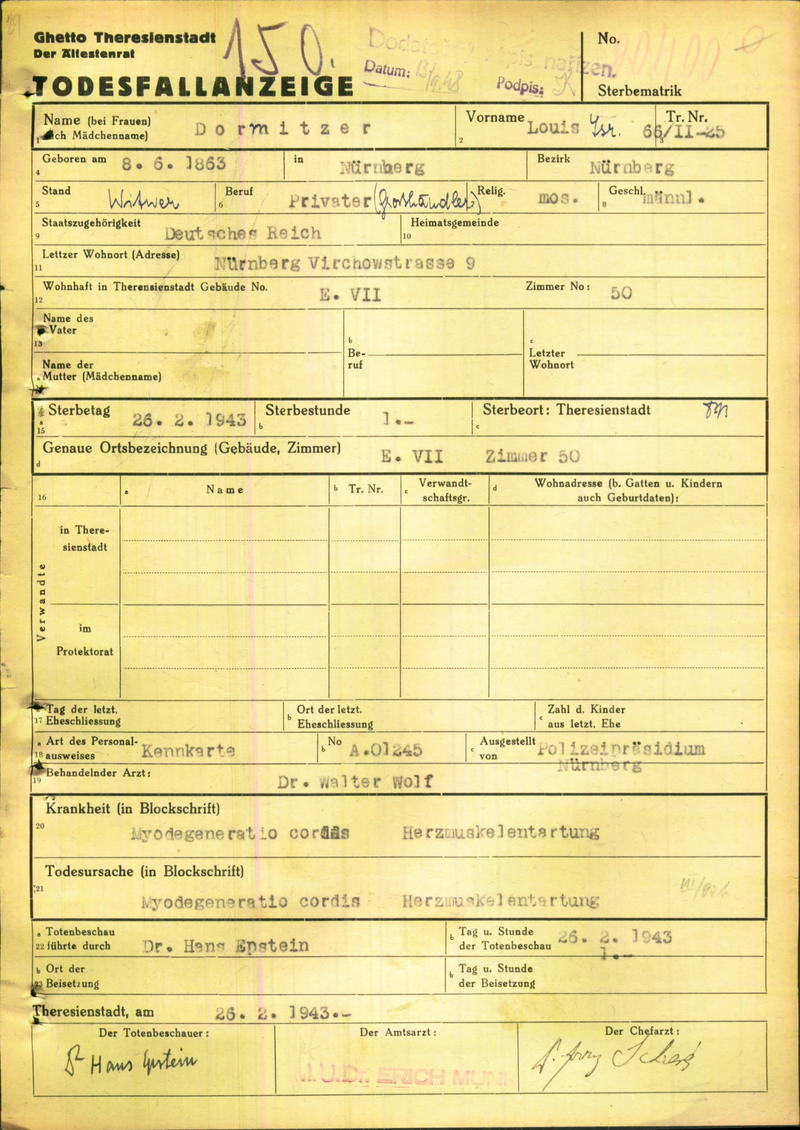 Ghetto Theresienstadt
Der Ältestenrat
150.
Datum:
Podpis:
No.
TODESFALLANZEIGE
Sterbematrik
Name (bei Frauen) Dormitzer Vorname Louis Isr. Tr. Nr.
1 auch Mädchenname) 2 66/II-25
Geboren am 8. 6. 1863 in Nürnberg Bezirk Nürnberg
4
Stand Witwer Beruf Privater (Großhändler) Relig. mos. Geschl. männl.
5 6 8
Staatszugehörigkeit Deutsches Reich Heimatsgemeinde
9 10
Lettzer Wohnort (Adresse) Nürnberg Virchowstrasse 9
11
Wohnhaft in Therensienstadt Gebäude No. E. VII Zimmer No: 50
12
Name des
Vater
13 b Be-ruf c Letzter Wohnort
Name der
Mutter (Mädchenname)
Sterbetag 26. 2. 1943 b Sterbestunde 1.- c Sterbeort: Theresienstadt
15
d Genaue Ortsbezeichnung (Gebäude, Zimmer) E. VII Zimmer 50
16 a Name b Tr. Nr. c Verwandt-schaftsgr. d Wohnadresse (b. Gatten u. Kindern auch Geburtdaten):
Verwandte
in There-
sienstadt
im
Protektorat
Tag der letzt. b Ort der letzt. c Zahl d. Kinder
17 Eheschliessung Eheschliessung aus letzt. Ehe
a Art des Personal- Kennkarte b No A.01245 c Ausgestellt Polizeipräsidium
18 ausweises von Nürnberg
Behandelnder Arzt:
19 Dr. Walter Wolf
Krankheit (in Blockschrift)
20 Myodegeneratio cordis Herzmuskelentartung
Todesursache (in Blockschrift)
21 Myodegeneratio cordis Herzmuskelentartung
a Totenbeschau b Tag u. Stunde 26. 2. 1943
22 führte durch Dr. Hans Epstein der Totenbeschau 1.-
b Ort der b Tag u. Stunde
Beisetzung der Beisetzung
Theresienstadt, am 26. 2. 1943.-
Der Totenbeschauer: Der Amtsarzt: Der Chefarzt:
Dr Hans Epstein J.U.Dr. ERICH MUNK